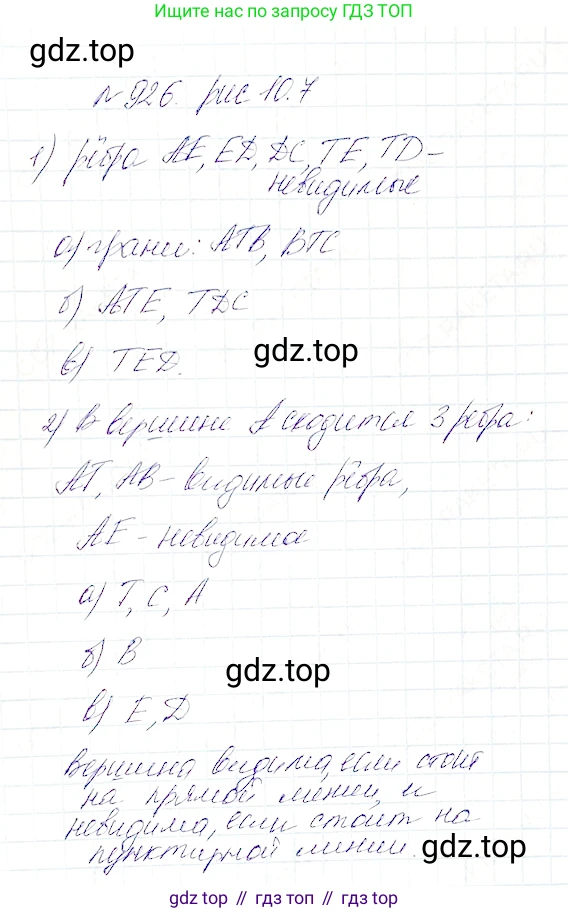 Ищите нас по запросу ГДЗ ТОП
gdz.top
№926. рис 10.7
1) рёбра AE, ED, DC, TE, TD –
невидимые
а) грани: ATB, BTC
б) ATE, TDC
gdz.top
в) TED.
2) В вершине A сходится 3 ребра:
AT, AB – видимые рёбра,
AE – невидимое
а) T, C, A
б) B
gdz.top
в) E, D
Вершина видима, если стоит
на прямой линии, и
невидима, если стоит на
пунктирной линии.
gdz.top
gdz top // гдз топ // гдз.top